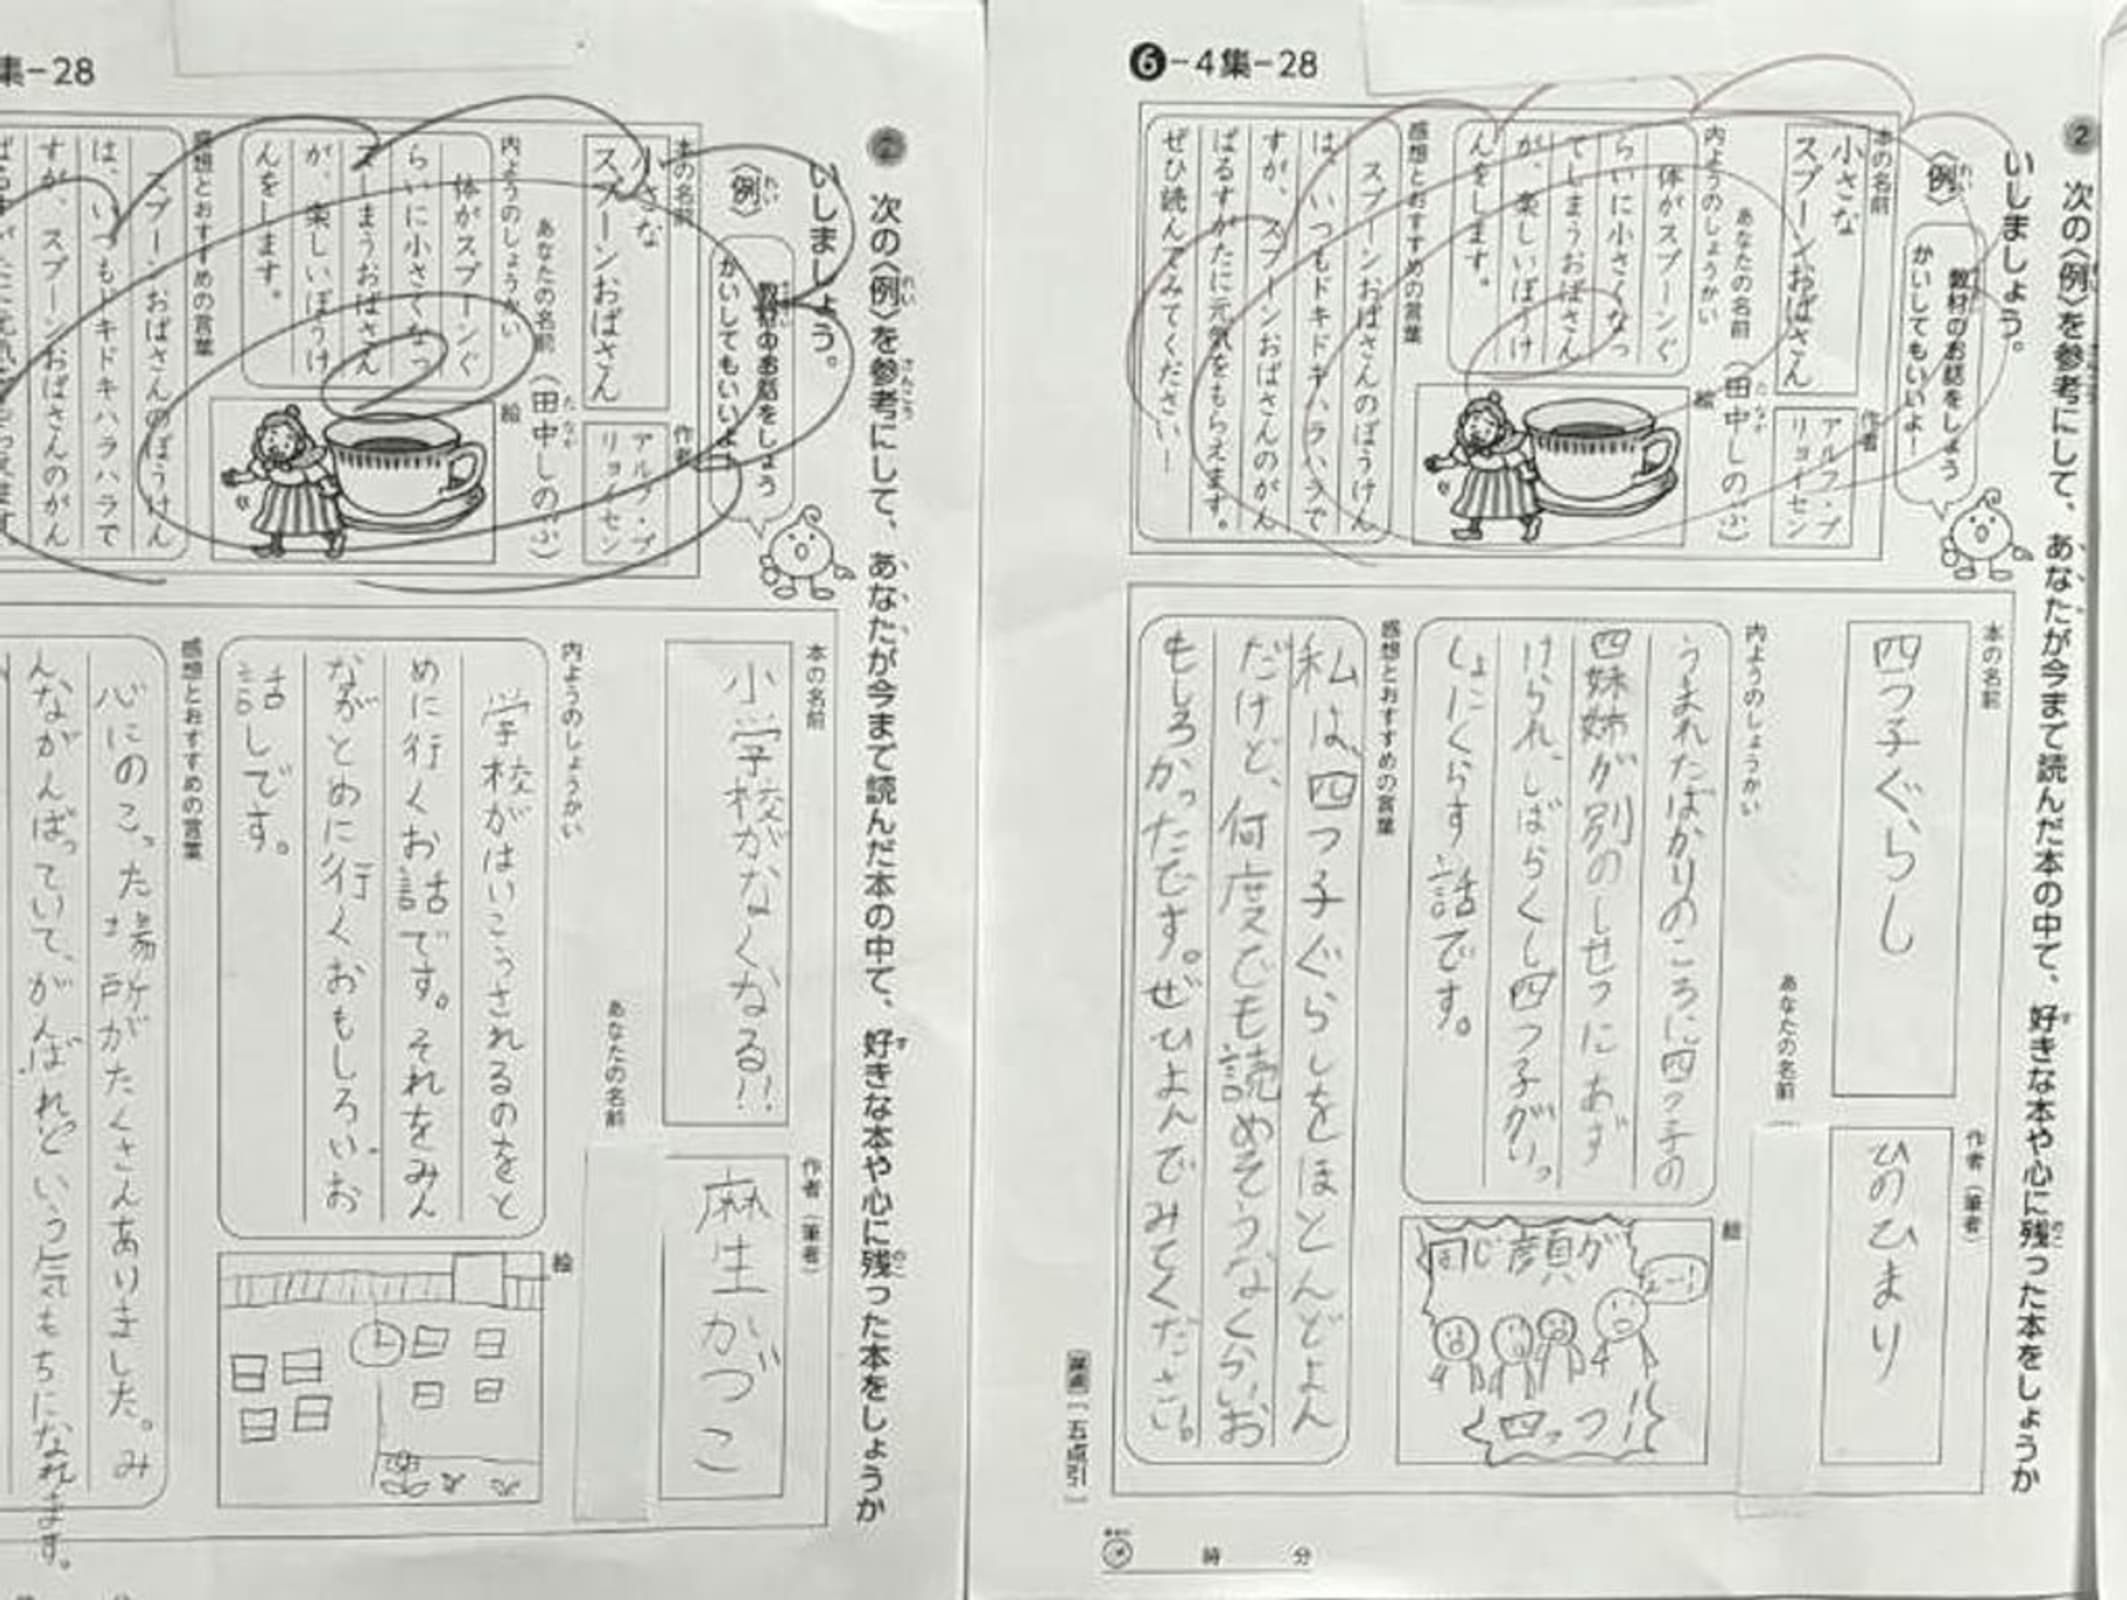 ❻-4集-28
② 次の〈例〉を参考にして、あなたが今まで読んだ本の中で、好きな本や心に残った本をしょうか
いしましょう。
〈例〉
教材のお話をしょう
かいしてもいいよ！
本の名前
小さな
スプーンおばさん
作者
アルフ・プ
リョイセン
あなたの名前（田中しのぶ）
内ようのしょうかい
体がスプーンぐ
らいに小さくなっ
てしまうおばさん
が、楽しいぼうけ
んをします。
絵
感想とおすすめの言葉
スプーンおばさんのぼうけん
は、いつもドキドキハラハラで
すが、スプーンおばさんのがん
ばるすがたに元気をもらえます。
ぜひ読んでみてください！
本の名前
四つ子ぐらし
作者（筆者）
ひのひまり
あなたの名前
内ようのしょうかい
うまれたばかりのころに四つ子の
四妹姉が別のしせつにあず
けられ、しばらくし四つ子がいっ
しょにくらす話です。
絵
同じ顔が
四っつ!!
感想とおすすめの言葉
私は、四つ子ぐらしをほとんどよん
だけど、何度でも読めそうなくらいお
もしろかったです。ぜひよんでみてください。
一五点引
時 分
集-28
② 次の〈例〉を参考にして、あなたが今まで読んだ本の中で、好きな本や心に残った本をしょうか
いしましょう。
〈例〉
教材のお話をしょう
かいしてもいいよ！
本の名前
小さな
スプーンおばさん
作者
アルフ・プ
リョイセン
あなたの名前（田中しのぶ）
内ようのしょうかい
体がスプーンぐ
らいに小さくなっ
てしまうおばさん
が、楽しいぼうけ
んをします。
絵
感想とおすすめの言葉
スプーンおばさんのぼうけん
は、いつもドキドキハラハラで
すが、スプーンおばさんのがん
本の名前
小学校がなくなる!!
作者（筆者）
麻生かづこ
あなたの名前
内ようのしょうかい
学校がはいこうされるのをと
めに行くお話です。それをみん
ながとめに行くおもしろいお
話しです。
絵
感想とおすすめの言葉
心にのこった場所がたくさんありました。み
んながんばっていて、がんばれという気もちになれます。